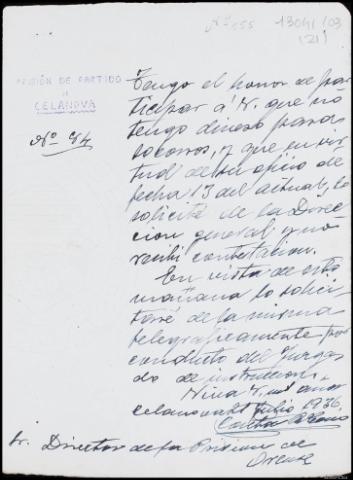 Nº 155 13041/03
(21)
PRISIÓN DE PARTIDO
DE
CELANOVA
Nº 54
Tengo el honor de par
ticipar á V. que no
tengo dinero para
socorros, y que en vir
tud de su oficio de
fecha 13 del actual, lo
solicité de la Direc
cion general y no
recibi contestacion.
En vista de esto
mañana lo solici
taré de la misma
telegraficamente por
conducto del Juzga
do de instruccion.
Viva V. m. años
Celanova Julio 1936
Sr. Director de la Prision de
Orense